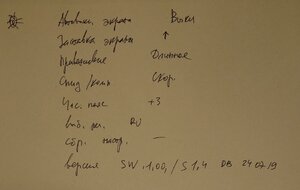 Активн. экрана Выкл
Заставка экрана ↑
Приветствие Длинное
Скор.
Час. пояс +3
выб. яз. RU
сбр. настр. —
версия SW.1,00,/S 1,4 DB 24 07 19